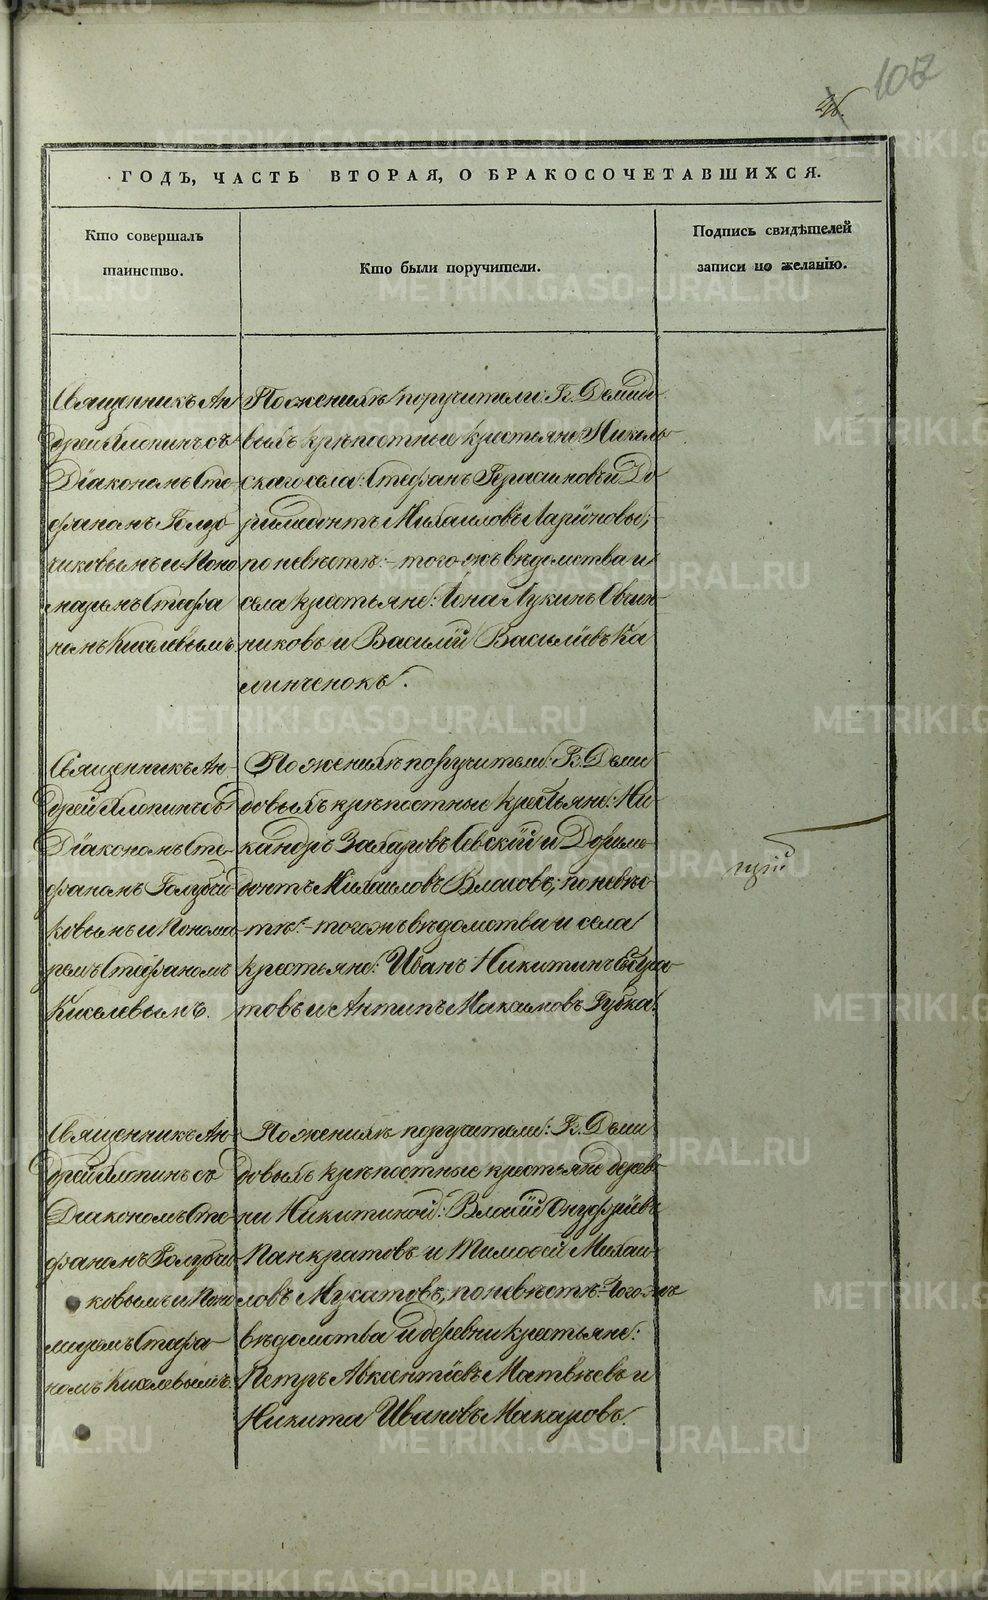 107
26.
ГОДЪ, ЧАСТЬ ВТОРАЯ, О БРАКОСОЧЕТАВШИХСЯ.
Кто совершалъ
таинство.
Кто были поручители.
Подпись свидѣтелей
записи по желанію.
Священникъ Ан
дрей Хлопинъ съ
Діакономъ Сте
фаномъ Голуб
чиковымъ и Поно
маремъ Стефа
номъ Киселевымъ
По женихѣ поручители: Гг. Демидо
выхъ крѣпостные крестьяне Николь
скаго села: Стефанъ Герасимовъ и До
римедонтъ Михаиловъ Ларіоновы;
по невѣстѣ: того жъ вѣдомства и
села крестьяне: Іона Лукинъ Овчин
никовъ и Василій Васильевъ Ка
линченокъ.
Священникъ Ан-
дрей Хлопинъ съ
Діакономъ Сте-
фаномъ Голубчи
ковымъ и Понома
ремъ Стефаномъ
Киселевымъ.
По женихѣ поручители: Гг. Деми
довыхъ крѣпостные крестьяне: Ни
кандръ Захаровъ Севскій и Дориме
донтъ Михаиловъ Власовъ; по невѣс
тѣ: тогожъ вѣдомства и села
крестьяне: Иванъ Никитинъ
товъ и Антипъ Максимовъ Губка.
щій
Священникъ Ан-
дрей Хлопинъ съ
Діакономъ Сте
фаномъ Голубчи
ковымъ и Поно
маремъ Стефа-
номъ Киселевымъ.
По женихѣ поручители: Гг. Деми
довыхъ крѣпостные крестьяне дерев
ни Никитиной: Власій Онуфріевъ
Панкратовъ и Тимоѳей Михаи
ловъ Мусатовъ; по невѣстѣ: того жъ
вѣдомства и деревни крестьяне:
Петръ Авксентіевъ Матвѣевъ и
Никита Ивановъ Макаровъ.
METRIKI.GASO-URAL.RU